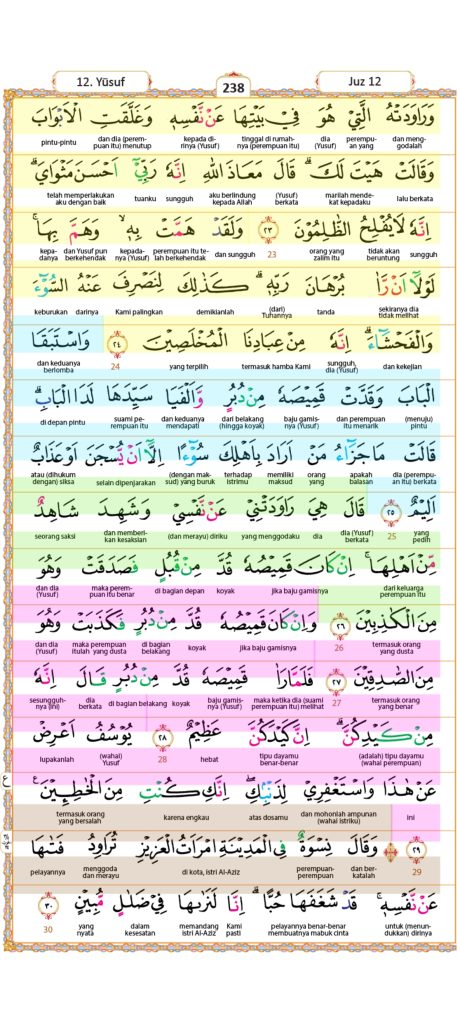 12. Yūsuf
238
Juz 12
وَرَاوَدَتْهُ الَّتِيْ هُوَ فِيْ بَيْتِهَا عَنْ نَّفْسِهٖ وَغَلَّقَتِ الْاَبْوَابَ
dan menggodalah perempuan yang dia (Yusuf) tinggal di rumahnya (perempuan itu) kepada dirinya (Yusuf) dan dia (perempuan itu) menutup pintu-pintu
وَقَالَتْ هَيْتَ لَكَ ۗ قَالَ مَعَاذَ اللّٰهِ اِنَّهٗ رَبِّيْٓ اَحْسَنَ مَثْوَايَ ۗ
lalu berkata marilah mendekat kepadaku (Yusuf) berkata aku berlindung kepada Allah sungguh tuanku telah memperlakukan aku dengan baik
اِنَّهٗ لَا يُفْلِحُ الظّٰلِمُوْنَ ٢٣ وَلَقَدْ هَمَّتْ بِهٖۙ وَهَمَّ بِهَاۚ
sungguh tidak akan beruntung orang yang zalim itu 23 dan sungguh perempuan itu telah berkehendak kepadanya (Yusuf) dan Yusuf pun berkehendak kepadanya
لَوْلَآ اَنْ رَّاٰ بُرْهَانَ رَبِّهٖۗ كَذٰلِكَ لِنَصْرِفَ عَنْهُ السُّوْۤءَ
sekiranya dia tidak melihat tanda (dari) Tuhannya demikianlah Kami palingkan darinya keburukan
وَالْفَحْشَاۤءَۗ اِنَّهٗ مِنْ عِبَادِنَا الْمُخْلَصِيْنَ ٢٤ وَاسْتَبَقَا
dan kekejian sungguh, dia (Yusuf) termasuk hamba Kami yang terpilih 24 dan keduanya berlomba
الْبَابَ وَقَدَّتْ قَمِيْصَهٗ مِنْ دُبُرٍ وَّاَلْفَيَا سَيِّدَهَا لَدَا الْبَابِۗ
(menuju) pintu dan perempuan itu menarik baju gamisnya (Yusuf) dari belakang (hingga koyak) dan keduanya mendapati suami perempuan itu di depan pintu
قَالَتْ مَا جَزَاۤءُ مَنْ اَرَادَ بِاَهْلِكَ سُوْۤءًا اِلَّآ اَنْ يُّسْجَنَ اَوْ عَذَابٌ
dia (perempuan itu) berkata apakah balasan orang memiliki maksud terhadap istrimu (dengan maksud) yang buruk selain dipenjarakan atau (dihukum dengan) siksa
اَلِيْمٌ ٢٥ قَالَ هِيَ رَاوَدَتْنِيْ عَنْ نَّفْسِيْ وَشَهِدَ شَاهِدٌ
yang pedih 25 dia (Yusuf) berkata dia yang menggodaku (dan merayu) diriku dan memberikan kesaksian seorang saksi
مِّنْ اَهْلِهَاۚ اِنْ كَانَ قَمِيْصُهٗ قُدَّ مِنْ قُبُلٍ فَصَدَقَتْ وَهُوَ
dari keluarga perempuan itu jika baju gamisnya koyak di bagian depan maka perempuan itu benar dan dia (Yusuf)
مِنَ الْكٰذِبِيْنَ ٢٦ وَاِنْ كَانَ قَمِيْصُهٗ قُدَّ مِنْ دُبُرٍ فَكَذَبَتْ وَهُوَ
termasuk orang yang dusta 26 jika baju gamisnya koyak di bagian belakang maka perempuan itulah yang dusta dan dia (Yusuf)
مِنَ الصّٰدِقِيْنَ ٢٧ فَلَمَّا رَاٰ قَمِيْصَهٗ قُدَّ مِنْ دُبُرٍ قَالَ اِنَّهٗ
termasuk orang yang benar 27 maka ketika dia (suami perempuan itu) melihat baju gamisnya (Yusuf) koyak di bagian belakang dia berkata sesungguhnya (ini)
مِنْ كَيْدِكُنَّۗ اِنَّ كَيْدَكُنَّ عَظِيْمٌ ٢٨ يُوْسُفُ اَعْرِضْ
(adalah) tipu dayamu (wahai perempuan) tipu dayamu benar-benar hebat 28 (wahai) Yusuf lupakanlah
عَنْ هٰذَا وَاسْتَغْفِرِيْ لِذَنْۢبِكِۖ اِنَّكِ كُنْتِ مِنَ الْخٰطِـِٕيْنَ ۚ
ini dan mohonlah ampunan (wahai istriku) atas dosamu karena engkau termasuk orang yang bersalah
ع
٢٩ وَقَالَ نِسْوَةٌ فِى الْمَدِيْنَةِ امْرَاَتُ الْعَزِيْزِ تُرَاوِدُ فَتٰىهَا
29 dan berkatalah perempuan-perempuan di kota, istri Al-Aziz menggoda dan merayu pelayannya
عَنْ نَّفْسِهٖۚ قَدْ شَغَفَهَا حُبًّاۗ اِنَّا لَنَرٰىهَا فِيْ ضَلٰلٍ مُّبِيْنٍ ٣٠
untuk (menundukkan) dirinya pelayannya benar-benar membuatnya mabuk cinta Kami pasti memandang istri Al-Aziz dalam kesesatan yang nyata 30